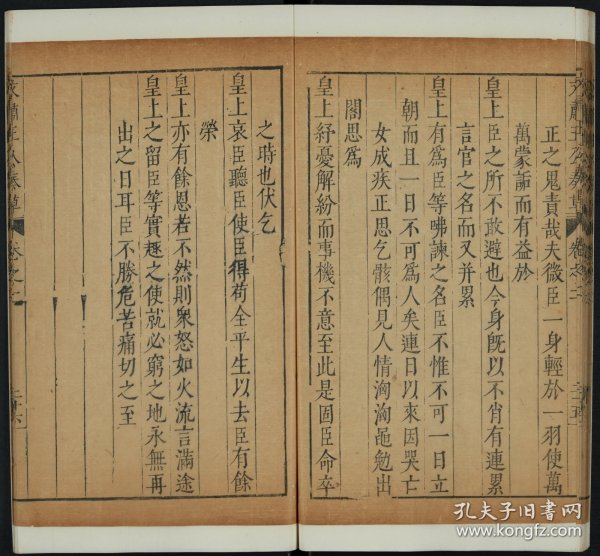 正之鬼責哉夫微臣一身輕於一羽使萬
萬蒙詬而有益於
皇上臣之所不敢避也今身旣以不肖有連累
言官之名而又并累
皇上有爲臣等咈諫之名臣不惟不可一日立
朝而且一日不可爲人矣連日以來因哭亡
女成疾正思乞骸偶見人情洶洶黽勉出
閤思爲
皇上紓憂解紛而事機不意至此是固臣命卒
之時也伏乞
皇上哀臣聽臣使臣得苟全平生以去臣有餘
榮
皇上亦有餘恩若不然則衆怒如火流言滿途
皇上之留臣等實趣之使就必窮之地永無再
出之日耳臣不勝危苦痛切之至
文肅王公奏草
卷之二
二十五
文肅王公奏草
卷之二
二十六
孔夫子旧书网
www.kongfz.com